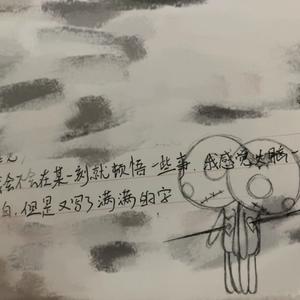 会不会在某一刻就顿悟一些事，我感觉大脑一
白，但是又写了满满的字